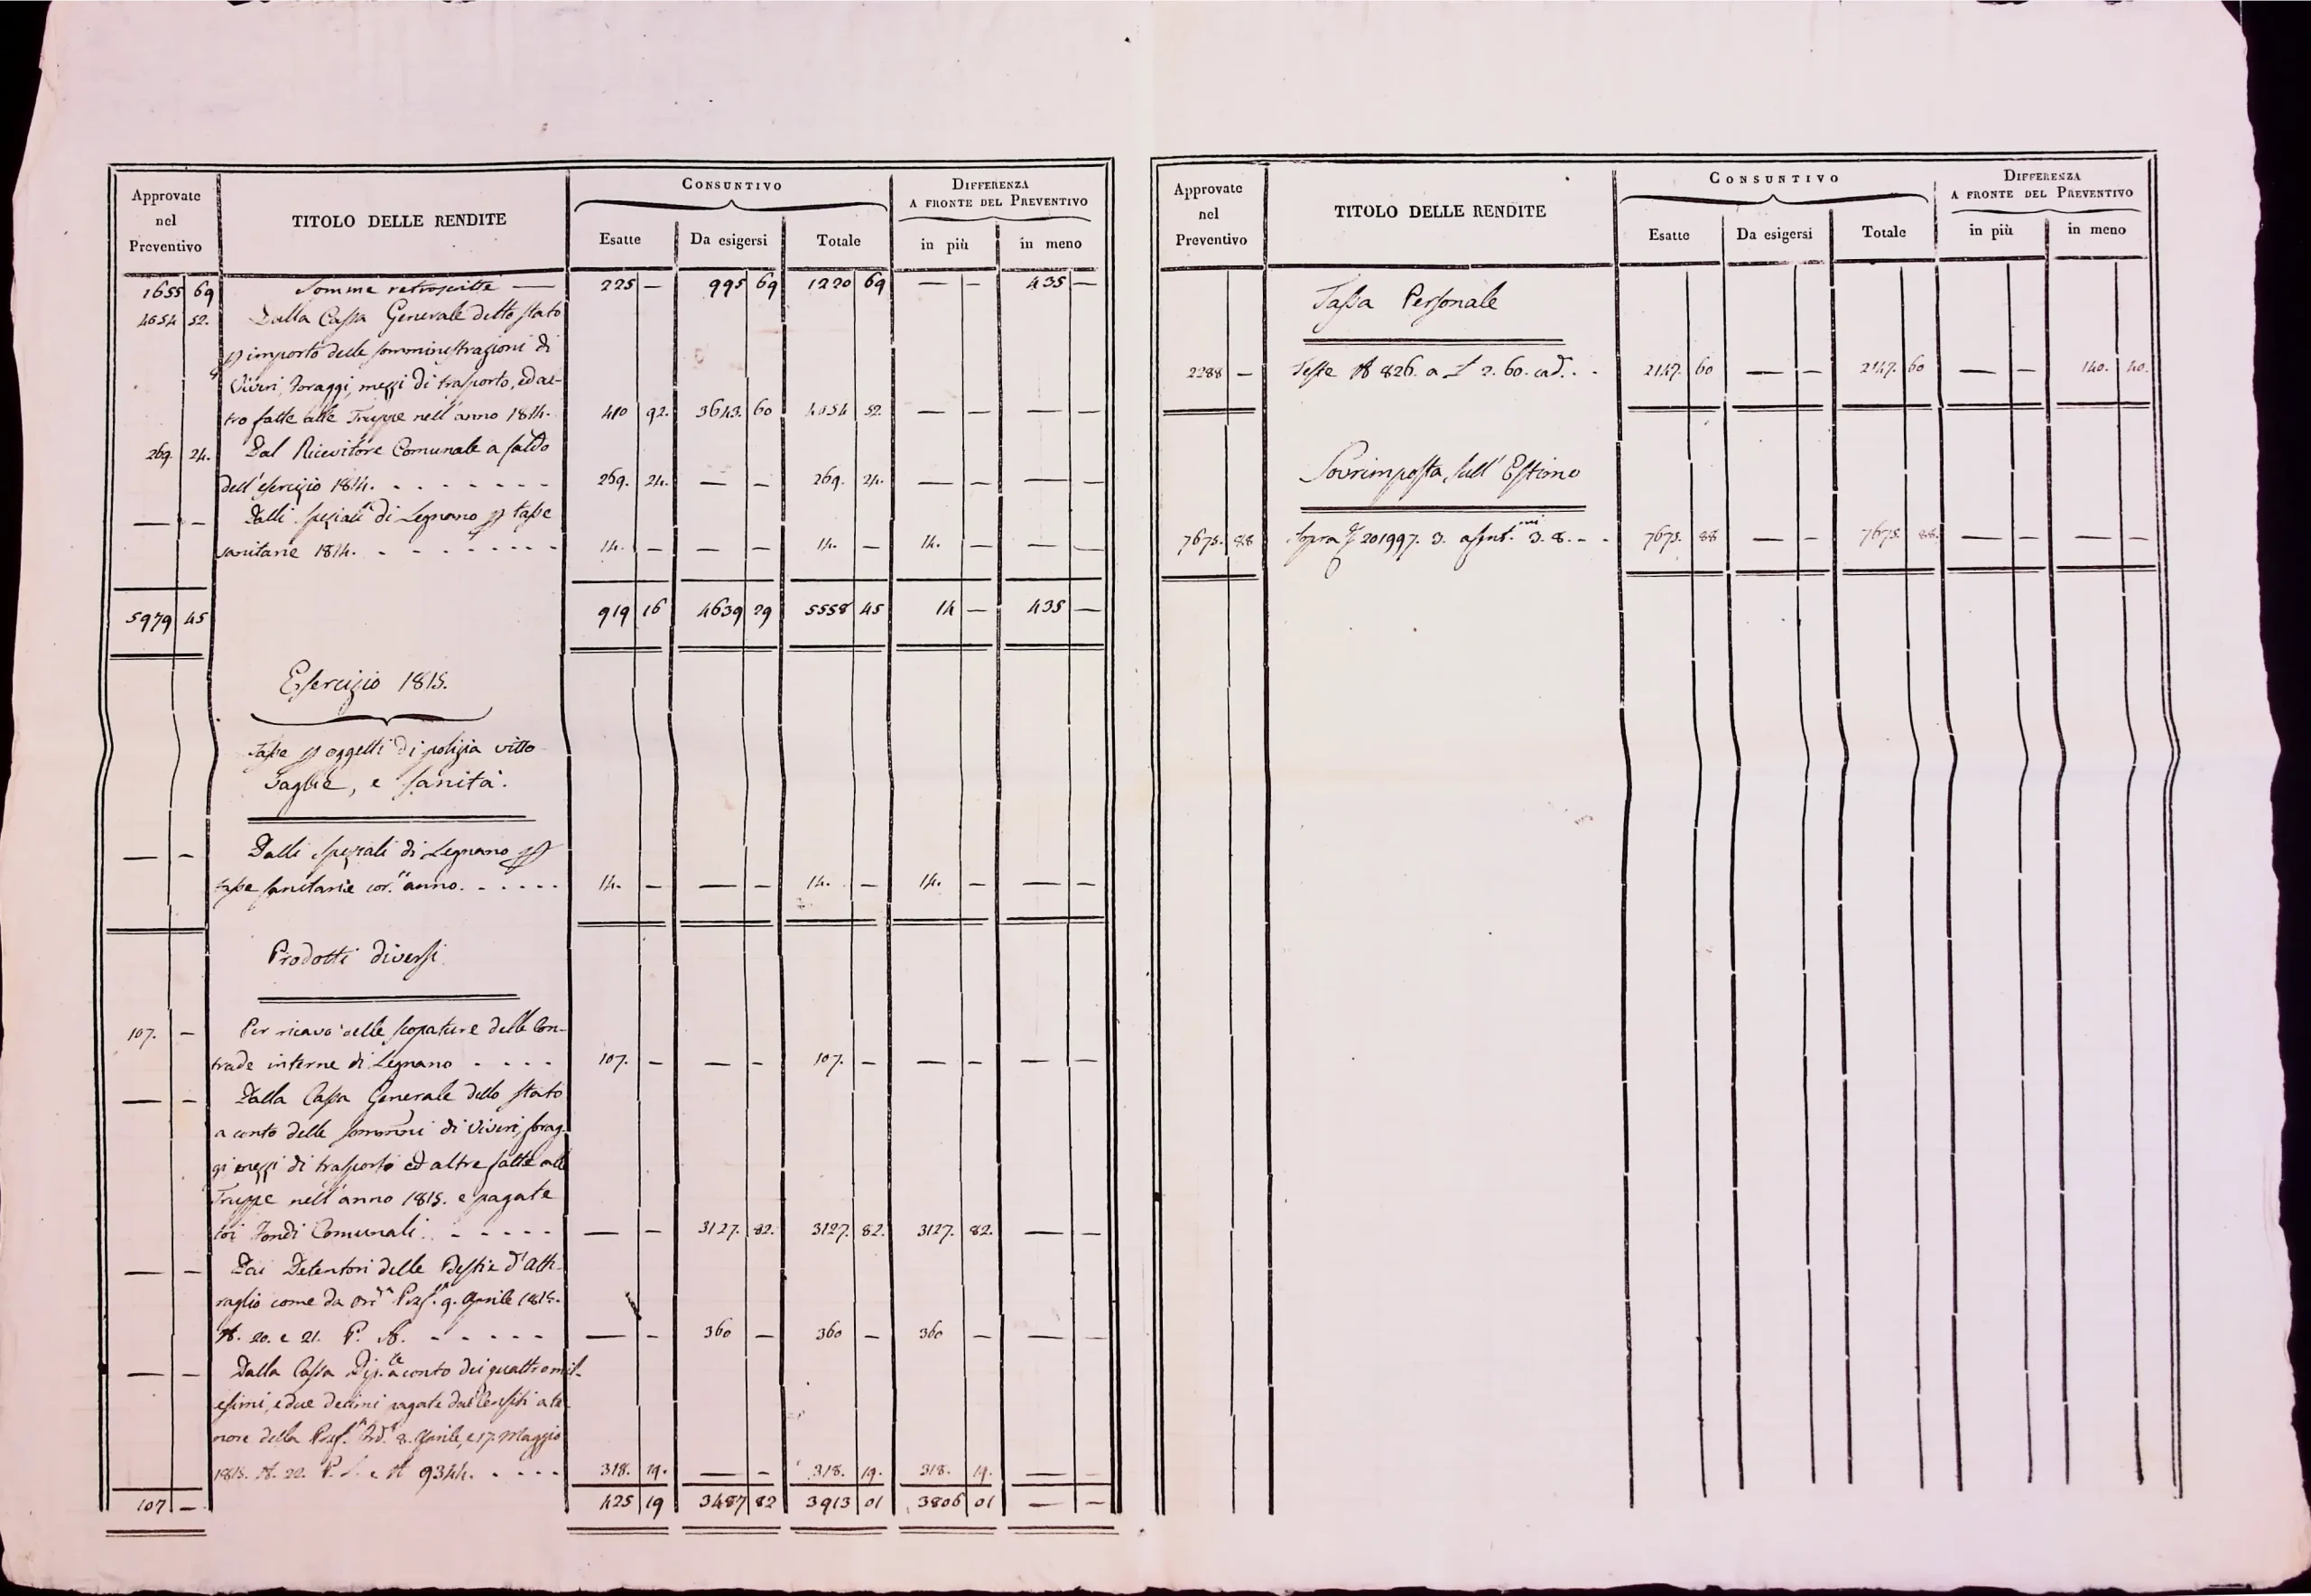 Approvate
nel
Preventivo
TITOLO DELLE RENDITE
CONSUNTIVO
DIFFERENZA
A FRONTE DEL PREVENTIVO
Esatte Da esigersi Totale in più in meno
1655 69 Somme retroscritte — 225 — 995 69 1220 69 — — 435 —
4054 52. Dalla Cassa Generale dello Stato
importo delle somministrazioni di
Viveri, Foraggi, mezzi di trasporto, ed al-
tro fatte alle Truppe nell'anno 1814. 410 92. 3643. 60 4054 52. — — — —
269. 24. Dal Ricevitore Comunale a saldo
dell'esercizio 1814. . . . . . . . 269. 24. — — 269. 24. — — — —
— — Dalli Speziali di Legnano tasse
sanitarie 1814. - - - - - - - - 14. — — — 14. — 14. — — —
5979 45 919 16 4639 29 5558 45 14 — 435 —
Esercizio 1815.
Tasse oggetti di polizia vitto
vaglie, e sanità.
— — Dalli Speziali di Legnano
tasse sanitarie cor.te anno. - - - - - 14. — — — 14. — 14. — — —
Prodotti diversi
107. — Per ricavo delle scopature delle Con-
trade interne di Legnano - - - - 107. — — — 107. — — — — —
— — Dalla Cassa Generale dello Stato
a conto delle somm.ni di Viveri, forag-
gi mezzi di trasporto ed altre fatte alle
Truppe nell'anno 1815. e pagate
coi Fondi Comunali. - - - - - — — 3127. 82. 3127. 82. 3127. 82. — —
— — Dai Detentori delle Bestie d'Atti-
raglio come da Ord.a Pref. 9. Aprile 1815.
N. 20. e 21. P. - - - - - — — 360 — 360 — 360 — — —
— — Dalla Cassa Dip.le a conto dei quattro mil-
esimi, e due decimi pagate dalli Censiti a te-
nore della Pref.a Ord.a 8. Aprile, e 17. Maggio
1815. N. 22. P. e N 9344. - - - - 318. 19. — — 318. 19. 318. 19. — —
107 — 425 19 3487 82 3913 01 3806 01 — —
Approvate
nel
Preventivo
TITOLO DELLE RENDITE
CONSUNTIVO
DIFFERENZA
A FRONTE DEL PREVENTIVO
Esatte Da esigersi Totale in più in meno
Tassa Personale
2288 — Teste N 826. a L 2. 60. cad. . - 2147. 60 — — 2147. 60 — — 140. 40.
Sovrimposta sull'Estimo
7675. 88 Sopra 201997. 3. 3. 8. - - 7675. 88 — — 7675. 88. — — — —